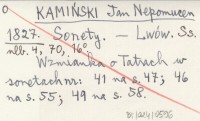 O KAMIŃSKI Jan Nepomucen
1827. Sonety. — Lwów. Ss.
nlb. 4, 70, 16°.
Wzmianka o Tatrach w
sonetach nr: 41 na s. 47; 46
na s. 55; 49 na s. 58.